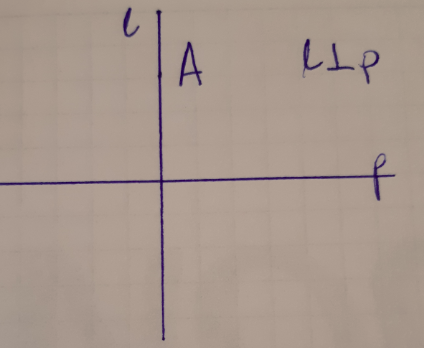 l
A
l⊥p
p